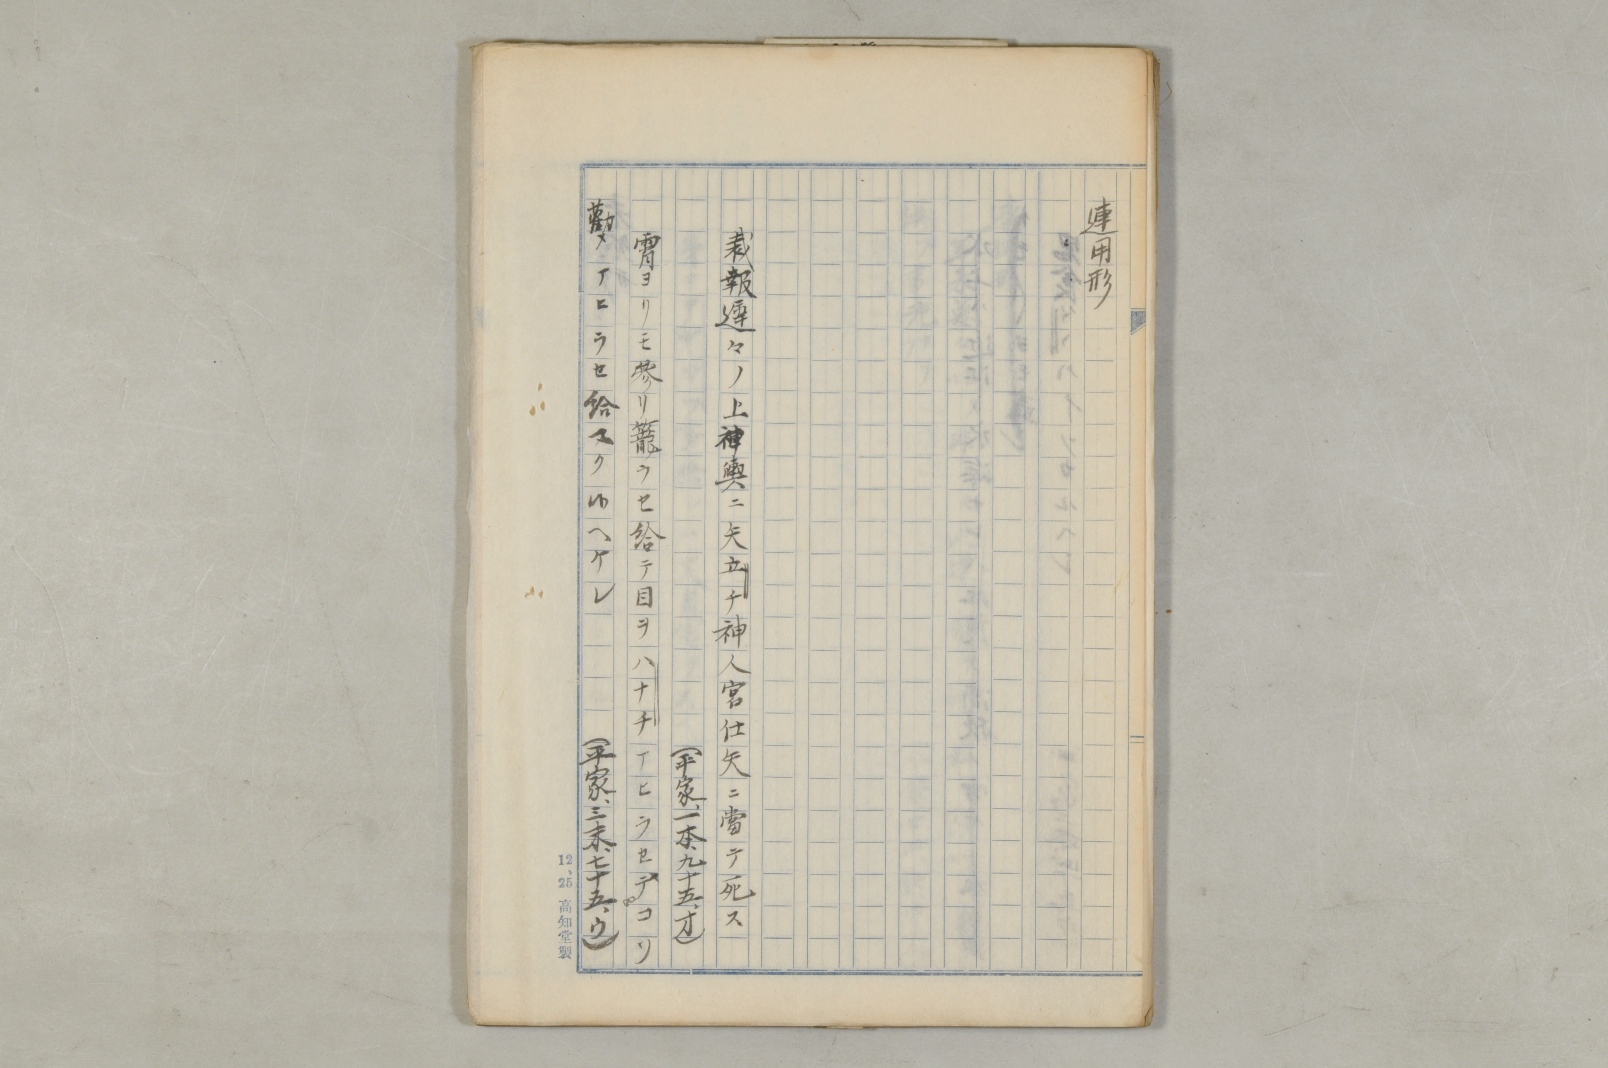 連用形
裁報遅々ノ上神輿ニ矢立チ神人宮仕矢ニ當テ死ス
(平家、一本、九十五、オ)
霄ヨリモ参リ籠ラセ給テ目ヲハナチアヒラセテコソ
勸メアヒラセ給マクルヘケレ
(平家、三末、七十五、ウ)
12、25 高知堂製